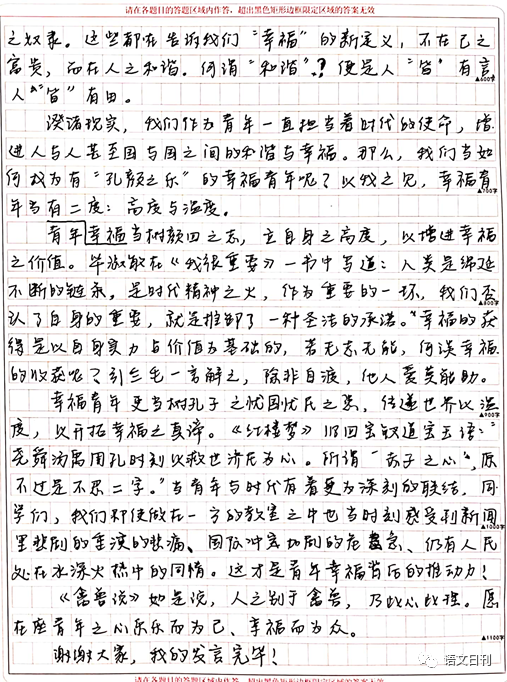 请在各题目的答题区域内作答，超出黑色矩形边框限定区域的答案无效
之奴录。这些都在告诉我们“幸福”的新定义，不在己之
富贵，而在人之和谐。何谓“和谐”？便是人“皆”有言
▲600字
人“皆”有田。
澄诸现实，我们作为青年一直担当着时代的使命，增
进人与人甚至国与国之间的和谐与幸福。那么，我们当如
何成为有“孔颜之乐”的幸福青年呢？以我之见，幸福青
▲700字
年当有二度：高度与温度。
青年幸福当树颜回之志，立自身之高度，以增进幸福
之价值。毕淑敏在《我很重要》一书中写道：人类是绵延
不断的链条，是时代精神之火，作为重要的一环，我们否
▲800字
认了自身的重要，就是推卸了一种圣洁的承诺。“幸福的获
得是以自身实力与价值为基础的，若无志无能，何谈幸福
的收获呢？引三毛一言解之，除非自渡，他人爱莫能助。
幸福青年更当树孔子之忧国忧民之思，传递世界以温
▲900字
度，以开拓幸福之真谛。《红楼梦》旧回宝钗道宝玉语：“
尧舜汤禹周孔时刻以救世济民为心。所谓“赤子之心”，原
不过是不忍二字。”当青年与时代有着更为深刻的联结，同
学们，我们即使做在一方的教室之中也当时刻感受到新闻
▲1000字
里悲剧的重演的悲痛、国际冲突加剧的危急、仍有人民
处在水深火热中的同情。这才是青年幸福背后的推动力！
《禽兽说》如是说，人之别于禽兽，乃此心此理。愿
在座青年之心乐乐而为己、幸福而为众。
▲1100字
谢谢大家，我的发言完毕！
语文日刊
请在各题目的答题区域内作答，超出黑色矩形边框限定区域的答案无效